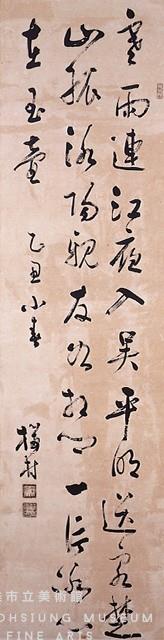 寒雨連江夜入吳平明送客楚
山孤洛陽親友如相問一片冰心
在玉壺 乙丑小春 村
市立美術館
OHSIUNG MUSEUM
FINE ARTS